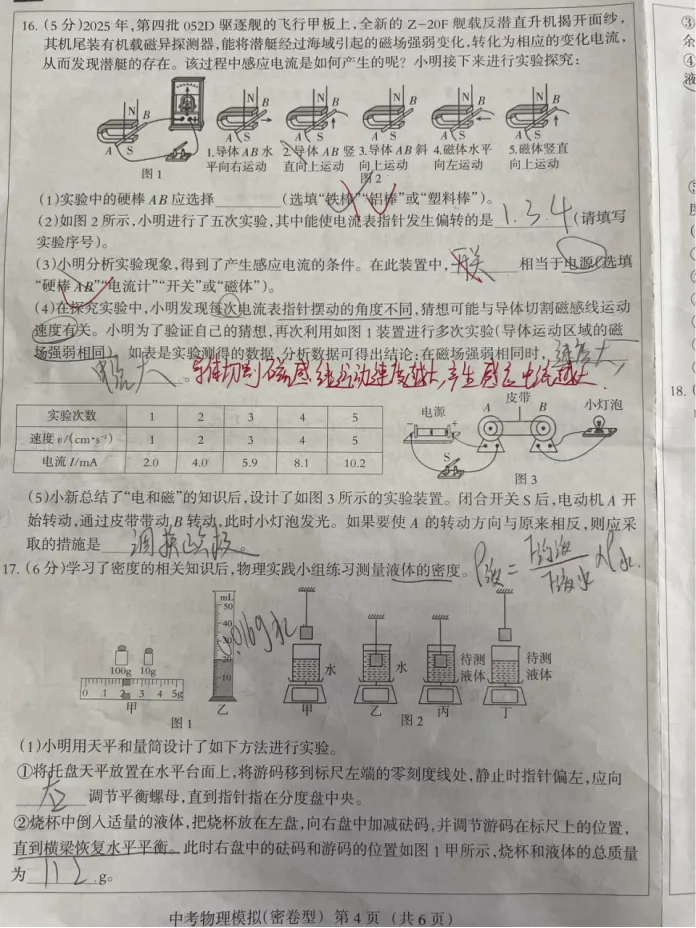 16.(5分)2025年,第四批052D驱逐舰的飞行甲板上,全新的Z-20F舰载反潜直升机揭开面纱,
其机尾装有机载磁异探测器,能将潜艇经过海域引起的磁场强弱变化,转化为相应的变化电流,
从而发现潜艇的存在。该过程中感应电流是如何产生的呢?小明接下来进行实验探究:
N B A S
图1
N B A S
N B A S
N B A S
N B A S
N B A S
1.导体AB水平向右运动
2.导体AB竖直向上运动
3.导体AB斜向上运动
4.磁体水平向左运动
5.磁体竖直向上运动
图2
(1)实验中的硬棒AB应选择______(选填“铁棒”“铝棒”或“塑料棒”)。
(2)如图2所示,小明进行了五次实验,其中能使电流表指针发生偏转的是1.3.4(请填写
实验序号)。
(3)小明分析实验现象,得到了产生感应电流的条件。在此装置中,开关相当于电源(选填
“硬棒AB”“电流计”“开关”或“磁体”)。
(4)在探究实验中,小明发现每次电流表指针摆动的角度不同,猜想可能与导体切割磁感线运动
速度有关。小明为了验证自己的猜想,再次利用如图1装置进行多次实验(导体运动区域的磁
场强弱相同)。如表是实验测得的数据,分析数据可得出结论:在磁场强弱相同时,速度大,
电流大。导体切割磁感线运动速度越大,产生感应电流越大.
实验次数 1 2 3 4 5
速度v/(cm·s⁻¹) 1 2 3 4 5
电流I/mA 2.0 4.0 5.9 8.1 10.2
电源 皮带 小灯泡
A B
S
图3
(5)小新总结了“电和磁”的知识后,设计了如图3所示的实验装置。闭合开关S后,电动机A开
始转动,通过皮带带动B转动,此时小灯泡发光。如果要使A的转动方向与原来相反,则应采
取的措施是调换正负极。
17.(6分)学习了密度的相关知识后,物理实践小组练习测量液体的密度。
100g 10g
0 1 2 3 4 5g
甲
mL
50
40
30
20
10
乙
图1
水
甲
水
乙
待测
液体
丙
待测
液体
丁
图2
(1)小明用天平和量筒设计了如下方法进行实验。
①将托盘天平放置在水平台面上,将游码移到标尺左端的零刻度线处,静止时指针偏左,应向
右调节平衡螺母,直到指针指在分度盘中央。
②烧杯中倒入适量的液体,把烧杯放在左盘,向右盘中加减砝码,并调节游码在标尺上的位置,
直到横梁恢复水平平衡。此时右盘中的砝码和游码的位置如图1甲所示,烧杯和液体的总质量
为112g。
中考物理模拟(密卷型) 第4页 (共6页)
18.(